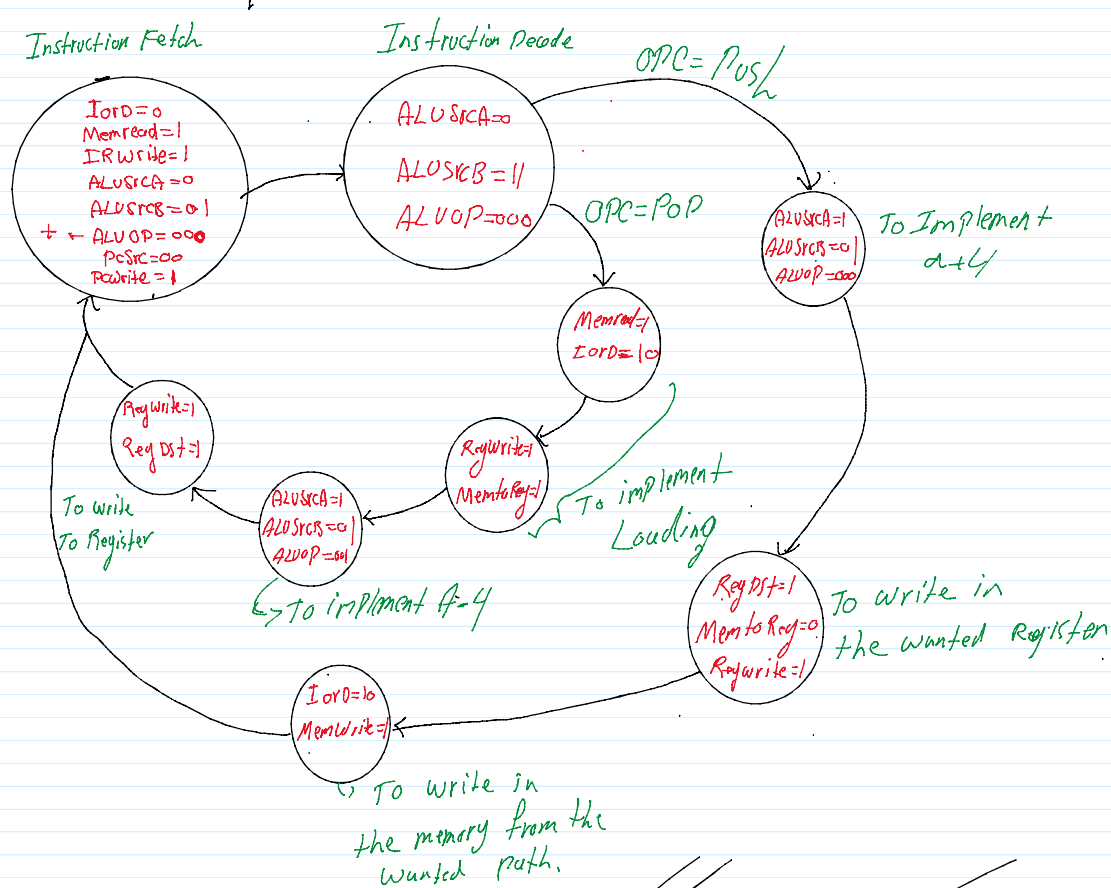 Instruction Fetch
IorD=0
Memread=1
IRWrite=1
ALUSrcA=0
ALUSrcB=01
+ ← ALUOP=000
PcSrc=00
PcWrite=1
Instruction Decode
ALUSrcA=0
ALUSrcB=11
ALUOP=000
OPC=Push
ALUSrcA=1
ALUSrcB=01
ALUOP=000
To Implement
a+4
OPC=POP
Memread=1
IorD=10
To implement
Loading
RegWrite=1
MemtoReg=1
ALUSrcA=1
ALUSrcB=01
ALUOP=001
To implment A-4
RegWrite=1
Reg Dst=1
To write
To Register
RegDst=1
MemtoReg=0
Regwrite=1
To write in
the wanted Register
IorD=10
MemWrite=1
To write in
the memory from the
wanted path.